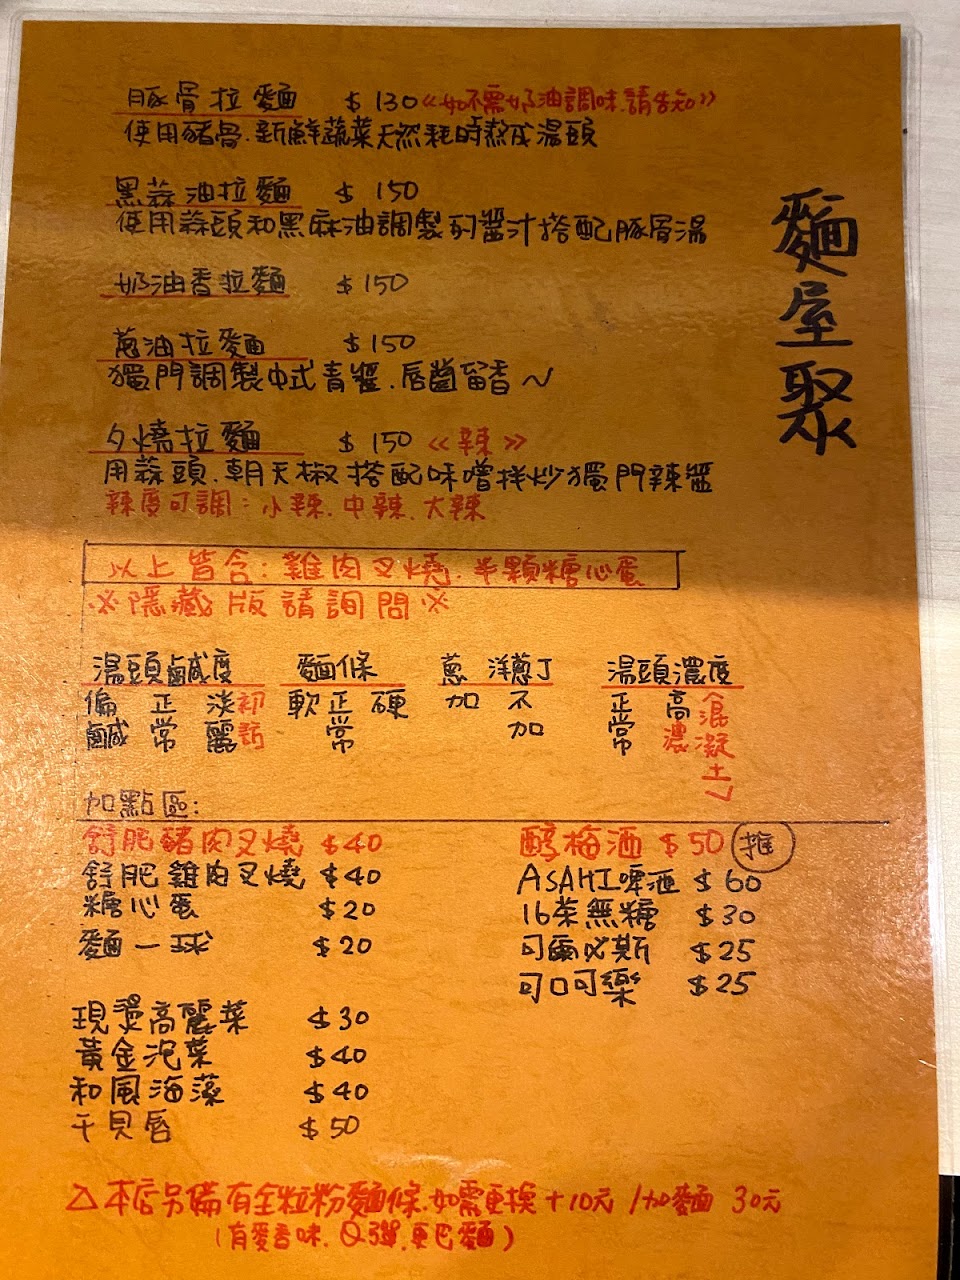 麵屋聚
豚骨拉麵 $130《如不需奶油調味.請告知》
使用豬骨.新鮮蔬菜天然耗時熬成湯頭
黑蒜油拉麵 $150
使用蒜頭和黑麻油調製的醬汁搭配豚骨湯
奶油香拉麵 $150
蔥油拉麵 $150
獨門調製中式青醬.唇齒留香~
夕燒拉麵 $150《辣》
用蒜頭.朝天椒搭配味噌拌炒獨門辣醬
辣度可調:小辣.中辣.大辣
以上皆含:雞肉叉燒.半顆糖心蛋
※隱藏版請詢問※
湯頭鹹度 麵條 蔥 洋蔥丁 湯頭濃度
偏鹹 正常 淡麗初訪 軟 正常 硬 加 不加 正常 高濃「混凝土」
加點區:
舒肥豬肉叉燒 $40
舒肥雞肉叉燒 $40
糖心蛋 $20
麵一球 $20
現燙高麗菜 $30
黃金泡菜 $40
和風海藻 $40
干貝唇 $50
醇梅酒 $50 推
ASAHI啤酒 $60
16茶無糖 $30
可爾必斯 $25
可口可樂 $25
△本店另備有全粒粉麵條.如需更換+10元/加麵 30元
(有麥香味.Q彈.更巴麵)